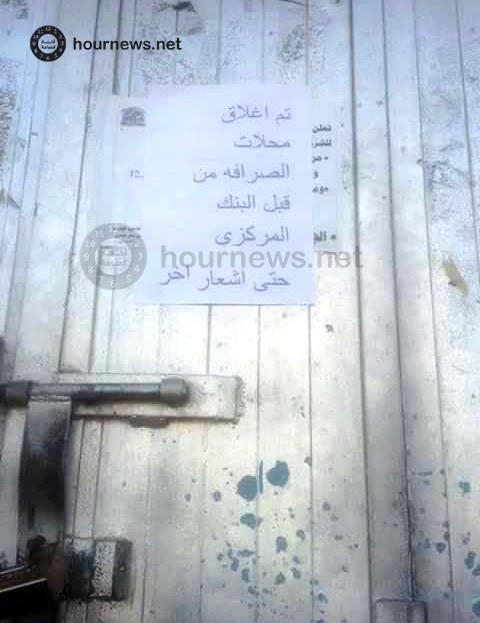 hournews.net
تم اغلاق
محلات
الصرافه من
قبل البنك
المركزي
حتى اشعار اخر
تعلن
hournews.net